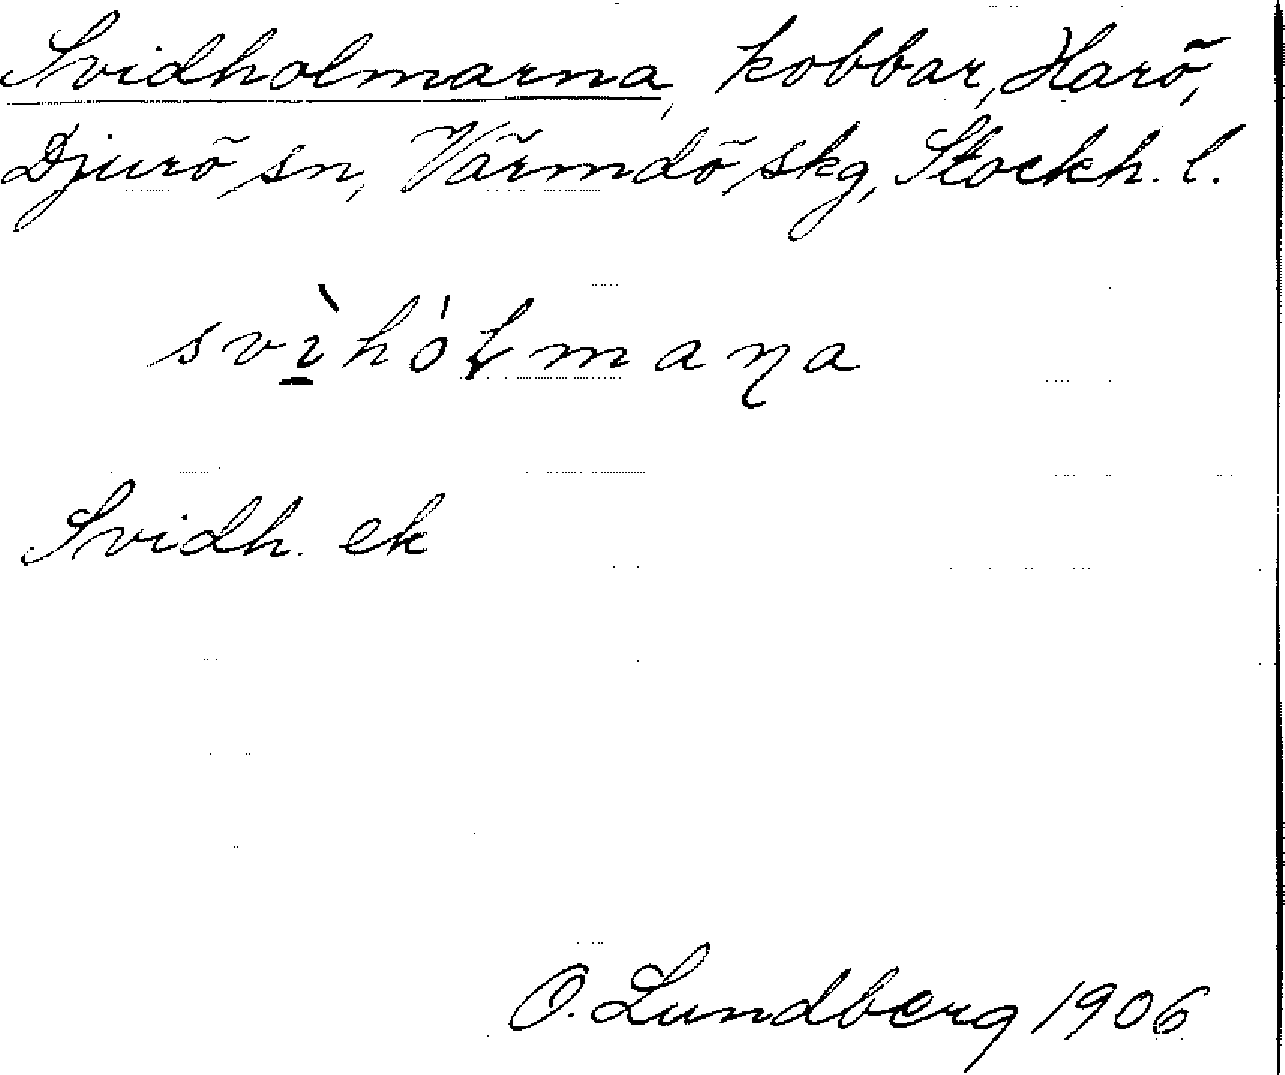 Svidholmarna, kobbar, Harö,
Djurö sn, Värmdö skg, Stockh. l.
svı̱̀hólmaņa
Svidh. ek
O. Lundberg 1906